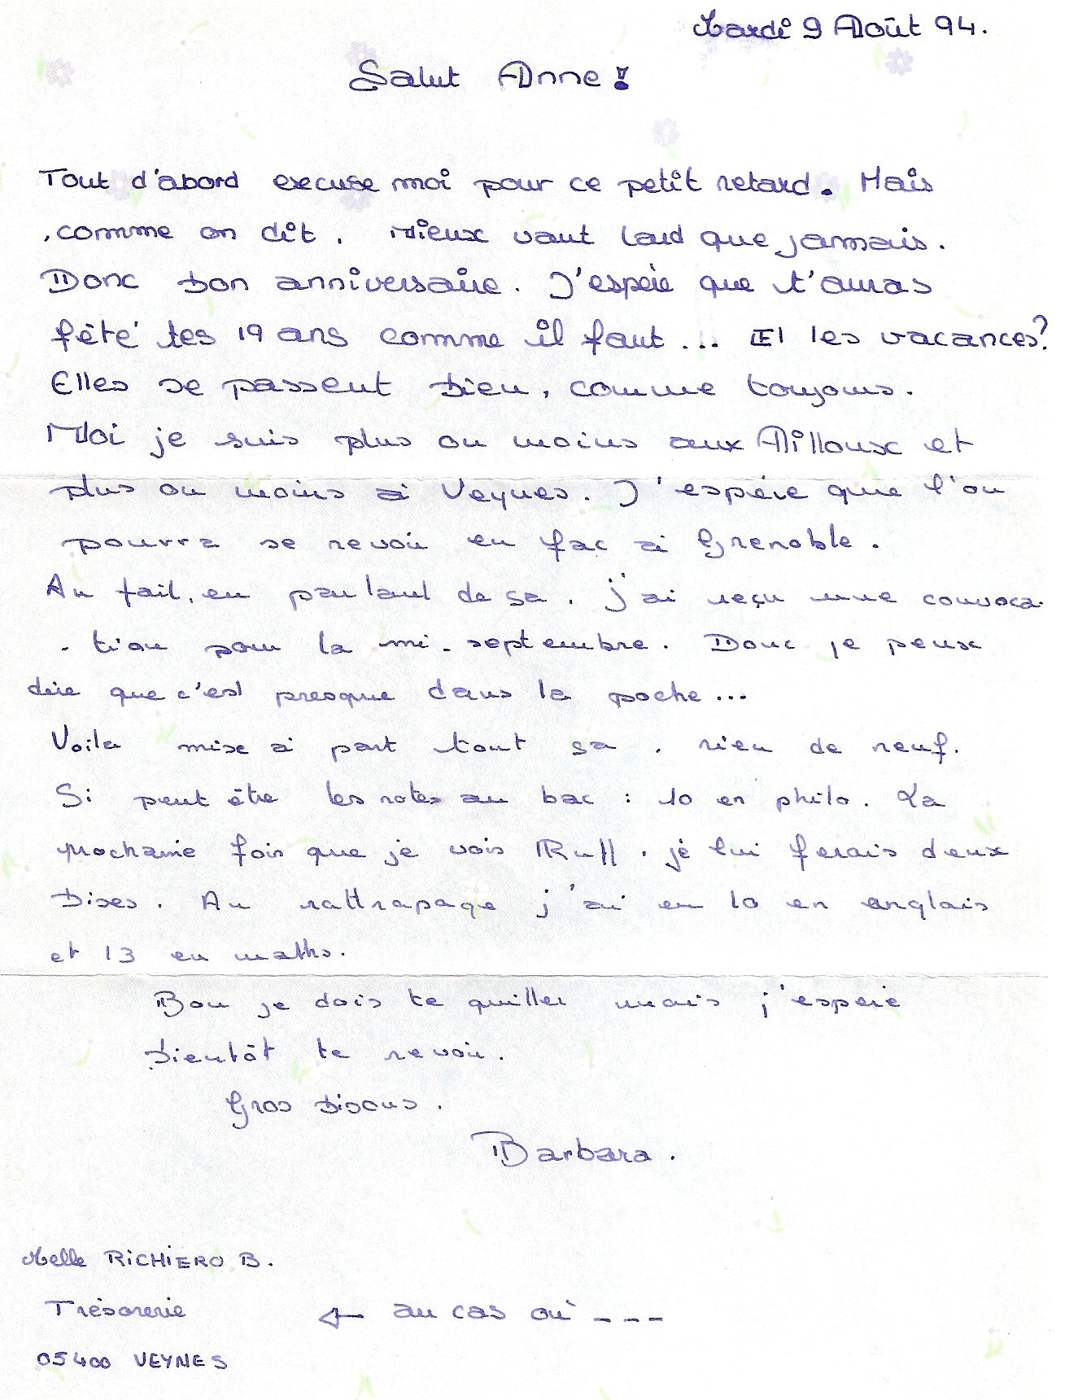 Mardi 9 Août 94.
Salut Anne !
Tout d'abord excuse moi pour ce petit retard. Mais
, comme on dit. Mieux vaut tard que jamais.
Donc bon anniversaire. J'espère que t'auras
fêté tes 19 ans comme il faut... Et les vacances ?
Elles se passent bien, comme toujours.
Moi je suis plus ou moins aux Ailloux et
plus ou moins à Veynes. J'espère que l'on
pourra se revoir en fac à Grenoble.
Au fait, en parlant de sa. j'ai reçu une convoca-
-tion pour la mi-septembre. Donc je peux
dire que c'est presque dans la poche...
Voila mise à part tout sa, rien de neuf.
Si peut être les notes au bac : 10 en philo. La
prochaine fois que je vois Rull, je lui ferais deux
bises. Au rattrapage j'ai eu 10 en anglais
et 13 en maths.
Bon je dois te quitter mais j'espère
bientôt te revoir.
Gros bisous.
Barbara.
Melle RICHIERO B.
Trésorerie ← au cas où ---
05400 VEYNES